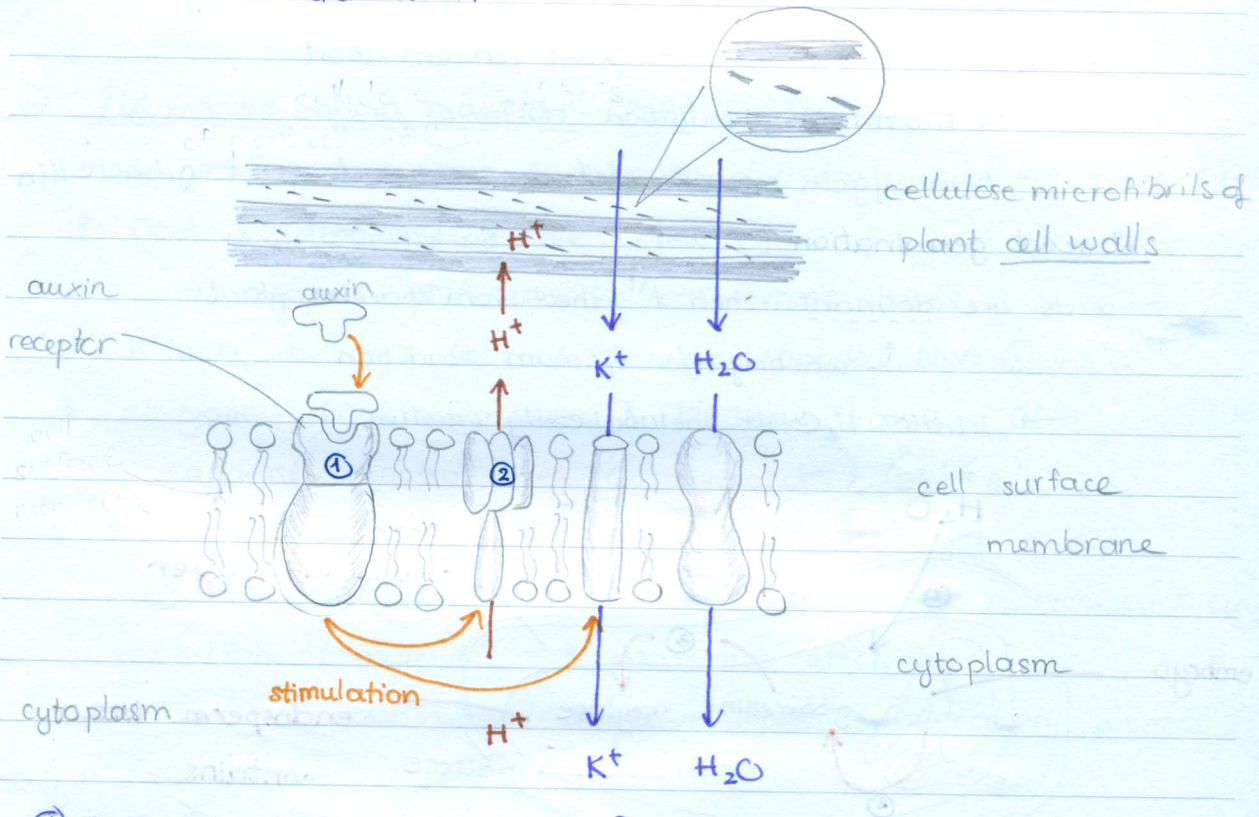 cellulose microfibrils of
plant cell walls
H⁺
auxin
auxin
receptor
H⁺
K⁺
H₂O
①
②
cell surface
membrane
stimulation
cytoplasm
cytoplasm
H⁺
K⁺
H₂O